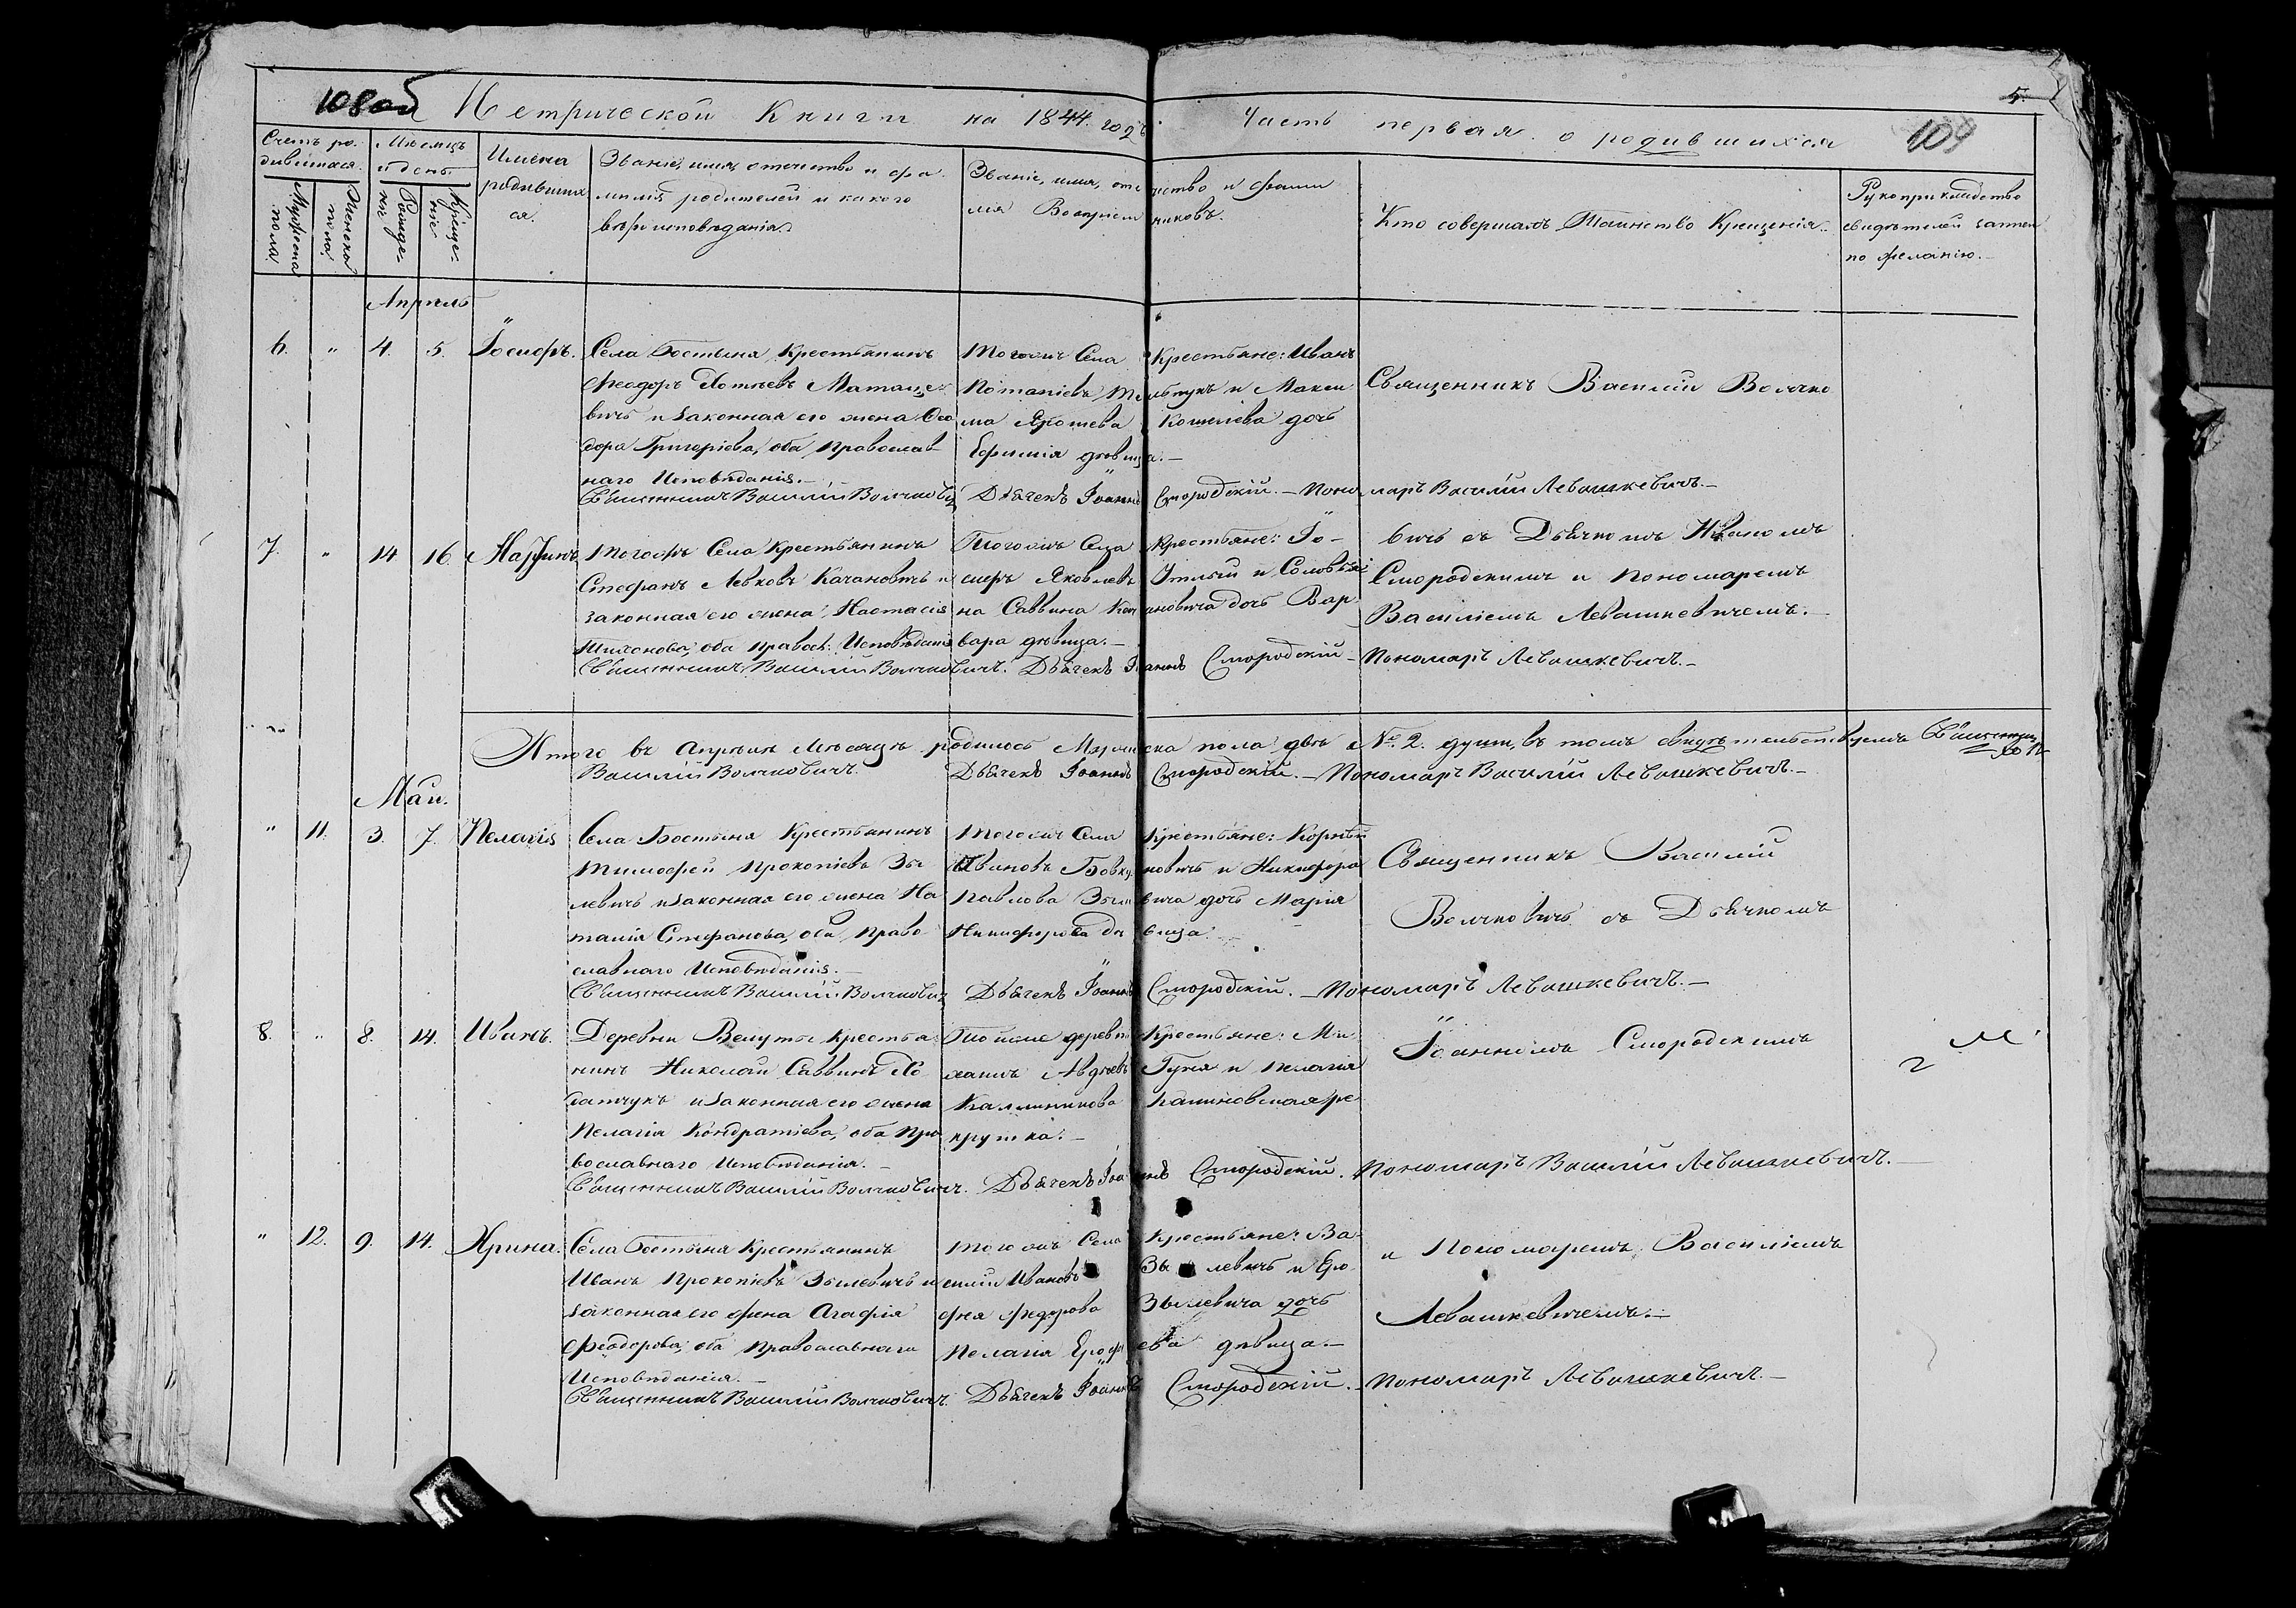 108об Метрической Книги на 1844. годъ. Часть первая о родившихся 5. 109
Счетъ ро-
дившихся.
Мужеска пола.
Женска пола.
Месяцъ
и день
Рожде-
нія
Креще-
нія
Имена
родивших
ся.
Званіе, имя, отечество и фа
милія родителей и какого
вероисповеданія.
Званіе, имя, отечество и фами
лія Воспріемниковъ.
Кто совершалъ Таинство Крещенія.
Рукоприкладство
свидетелей записи
по желанію.
Апрель
6. " 4. 5. Іосифъ.
Села Бостыня Крестьянинъ
Феодоръ Хотеевъ
вичъ и законная его жена Фео
дора Григоріева, оба Православ
наго Исповеданія.
Тогожъ Села Крестьяне: Иванъ
Потапіевъ и Макси
ма дочь
Ефимія девица.
Священникъ Василій Волчко
Священникъ Василій Волчковичъ Дьячекъ Іоаннъ Смородскій. Пономаръ Василій Левашкевичъ.
7. " 14 16
Тогожъ Села Крестьянинъ
Стефанъ Левковъ Качановичъ и
законная его жена Настасія
Тихонова, оба Правосл: Исповеданія
Тогожъ Села Крестьяне: Іо-
сифъ Яковлевъ и Соловьяі
на Саввина Качановича дочь Вар
вара девица.
вичъ съ Дьячкомъ Иваномъ
Смородскимъ и Пономаремъ
Василіемъ Левашкевичемъ.
Священникъ Василій Волчковичъ. Дьячекъ Іоаннъ Смородскій Пономаръ Левашкевичъ.
Итого въ Апреле Месяце родилось Мужеска пола две № 2. души, въ томъ свидетельствуемъ Священник
Василій Волчковичъ. Дьячекъ Іоаннъ Смородскій. Пономаръ Василій Левашкевичъ.
Май.
" 11. 3. 7. Пелагія
Села Бостыня Крестьянинъ
Тимофей Прокопіевъ Зы
левичъ и законная его жена На
талія Стефанова, оба Право
славнаго Исповеданія.
Тогожъ Села Крестьяне: Корній
Ивановъ Бовкуновичъ и Никифора
Павлова Зылевича дочь Марія
Никифорова девица.
Священникъ Василій
Волчковичъ съ Дьячкомъ
Священникъ Василій Волчковичъ Дьячекъ Іоаннъ Смородскій. Пономаръ Левашкевичъ.
8. " 8. 14. Иванъ.
Деревни Велуты Крестья
нинъ Николай Саввинъ Хо
датчукъ и законная его жена
Пелагія Кондратіева, оба Пра
вославнаго Исповеданія.
Тойже деревни Крестьяне: Ми
хаилъ Авдеевъ и Пелагія
Каллиникова Калиновская ре
крутка.
Іоанномъ Смородскимъ
Священникъ Василій Волчковичъ. Дьячекъ Іоаннъ Смородскій. Пономаръ Василій Левашкевичъ.
" 12. 9. 14. Ирина.
Села Бостыня Крестьянинъ
Иванъ Прокопіевъ Зылевичъ и
законная его жена Агафія
Феодорова, оба Православнаго
Исповеданія.
Тогожъ Села Крестьяне: Ва
силій Ивановъ Зылевичъ и Еро
фея Федорова Зылевича дочь
Пелагія Ерофеева девица.
и Пономаремъ Василіемъ
Левашкевичемъ.
Священникъ Василій Волчковичъ Дьячекъ Іоаннъ Смородскій. Пономаръ Левашкевичъ.